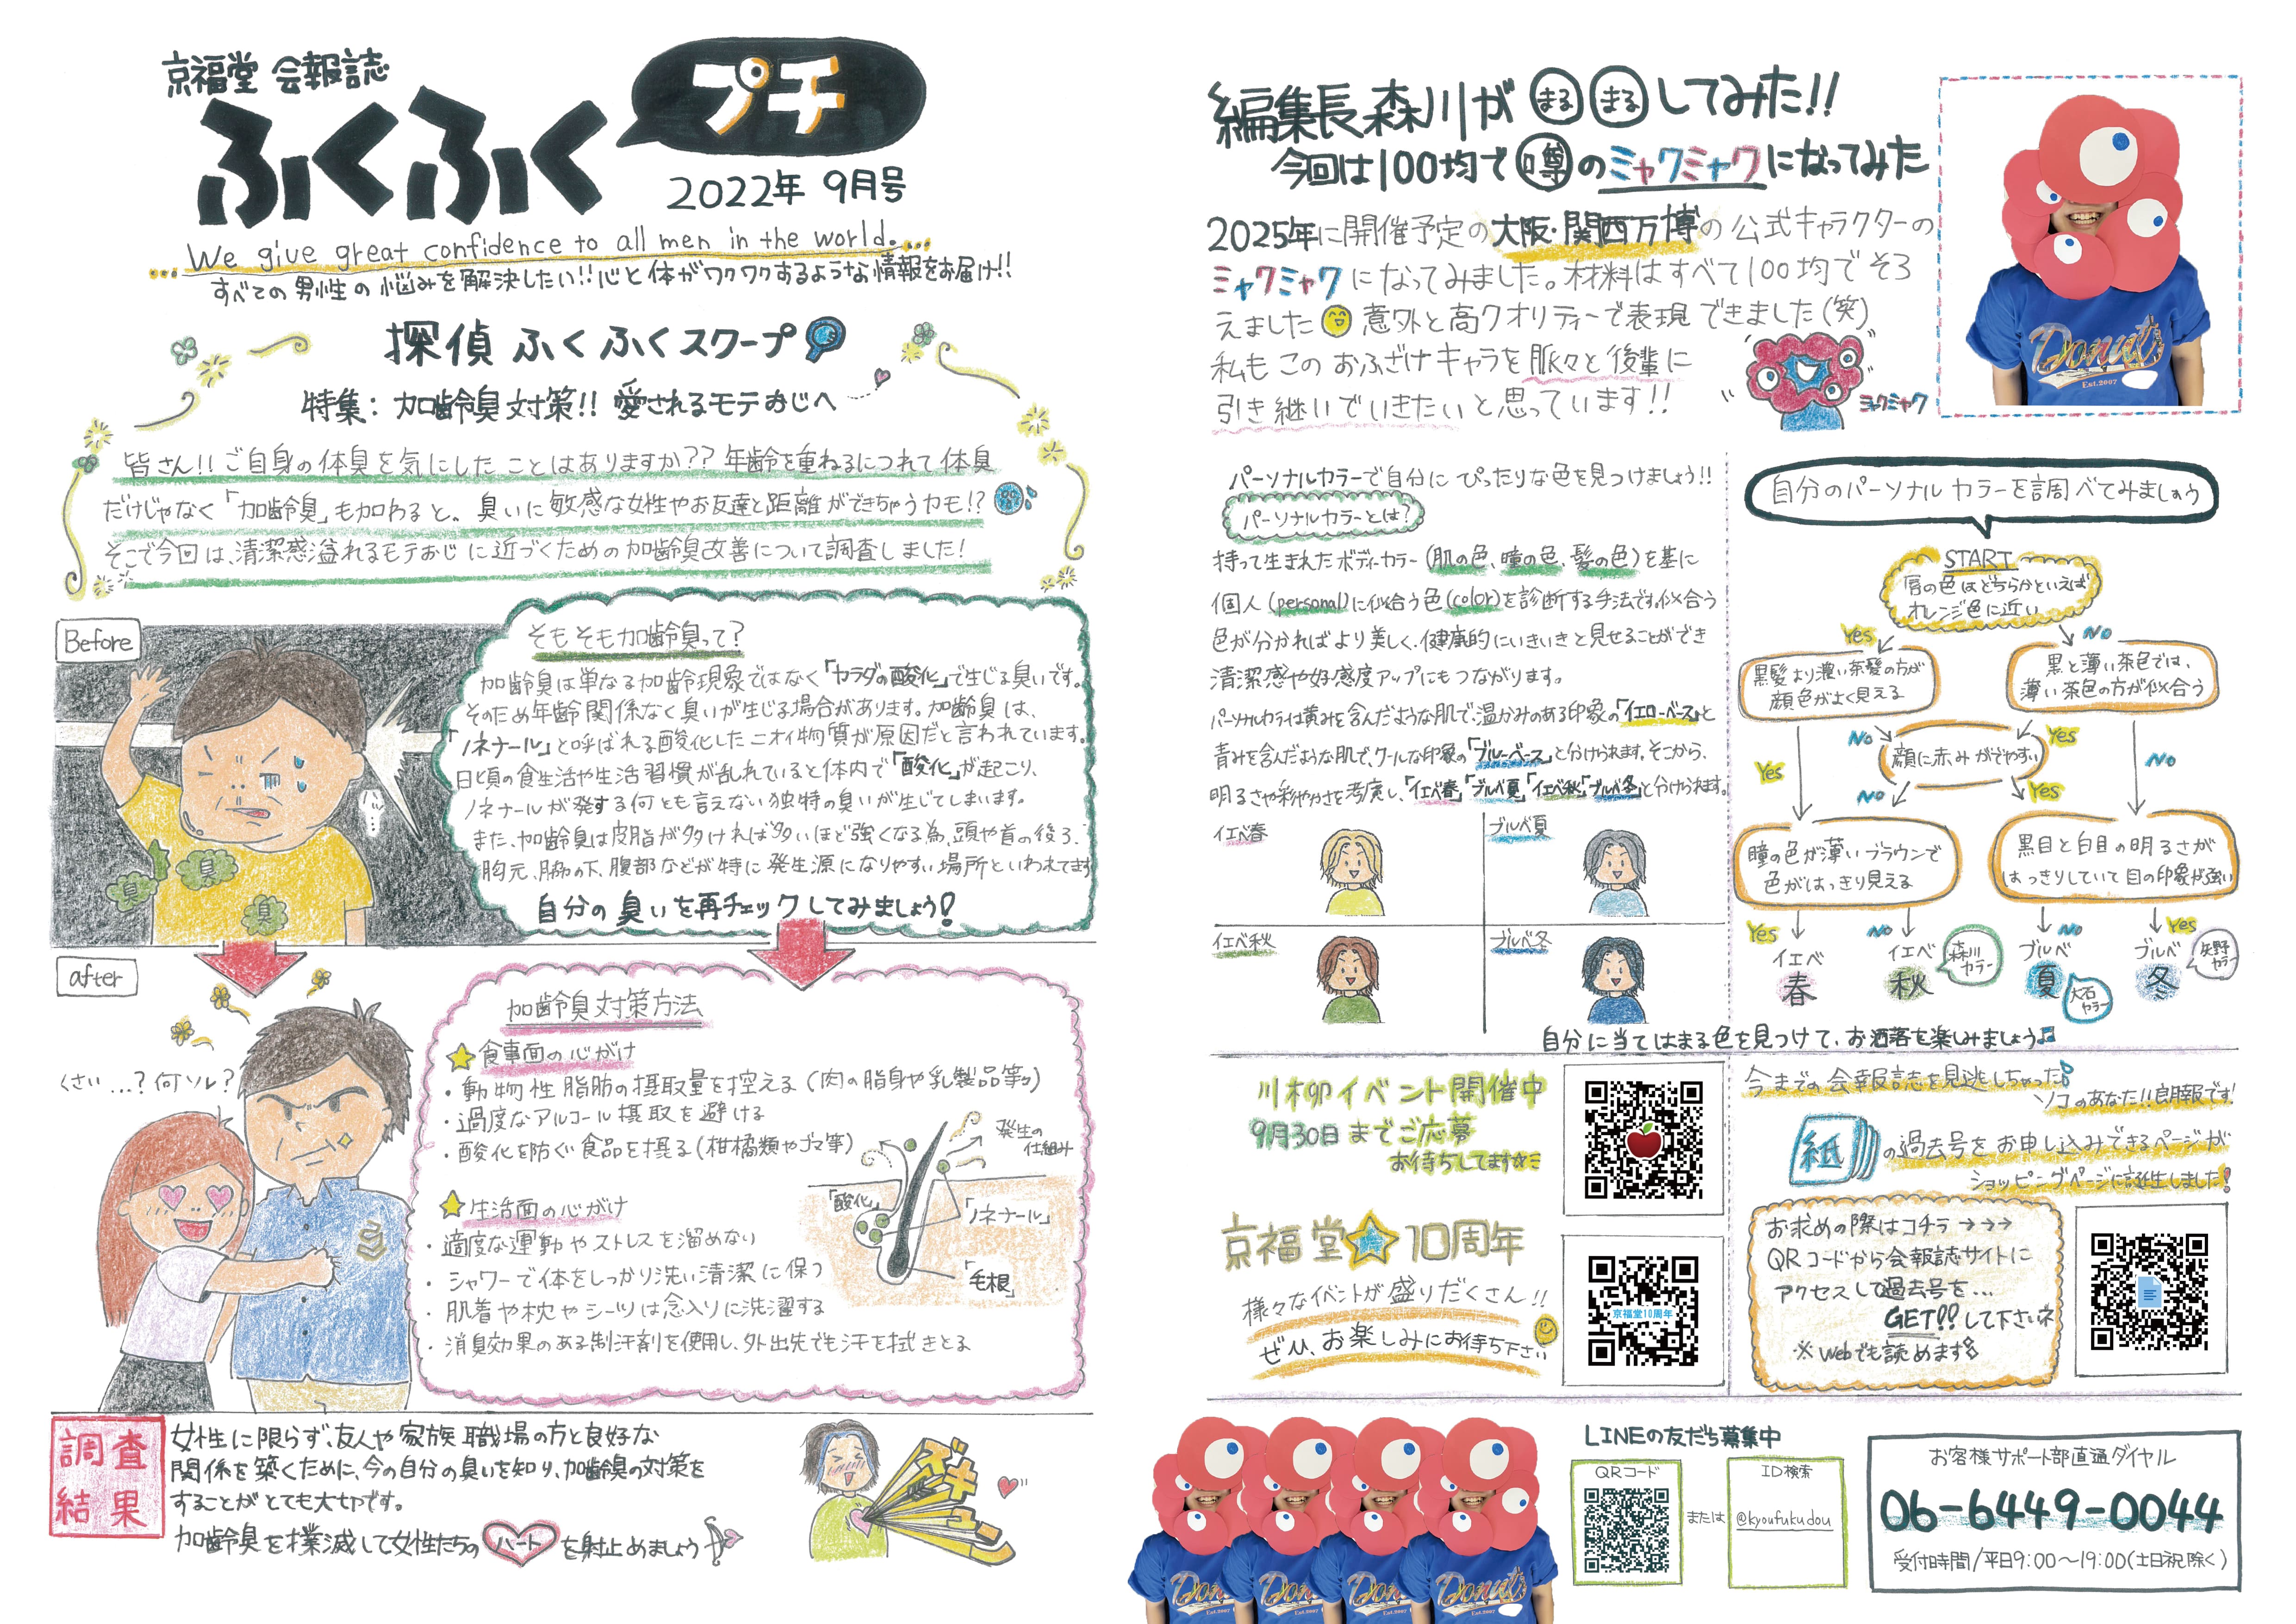 京福堂 会報誌
ふくふく
プチ
2022年 9月号
We give great confidence to all men in the world....
すべての男性の悩みを解決したい!!心と体がワクワクするような情報をお届け!!
探偵 ふくふくスクープ
特集: 加齢臭対策!! 愛されるモテおじへ
皆さん!! ご自身の体臭を気にしたことはありますか?? 年齢を重ねるにつれて体臭
だけじゃなく「加齢臭」も加わると、臭いに敏感な女性やお友達と距離ができちゃうカモ!?
そこで今回は、清潔感溢れるモテおじに近づくための加齢臭改善について調査しました!
Before
臭
臭
臭
そもそも加齢臭って?
加齢臭は単なる加齢現象ではなく「カラダの酸化」で生じる臭いです。
そのため年齢関係なく臭いが生じる場合があります。加齢臭は、
「ノネナール」と呼ばれる酸化したニオイ物質が原因だと言われています。
日頃の食生活や生活習慣が乱れていると体内で「酸化」が起こり、
ノネナールが発する何とも言えない独特の臭いが生じてしまいます。
また、加齢臭は皮脂が多ければ多いほど強くなる為、頭や首の後ろ、
胸元、脇の下、腹部などが特に発生源になりやすい場所といわれてます
自分の臭いを再チェックしてみましょう!
after
くさい...? 何ソレ?
加齢臭対策方法
食事面の心がけ
・動物性脂肪の摂取量を控える (肉の脂身や乳製品等)
・過度なアルコール摂取を避ける
・酸化を防ぐ食品を摂る (柑橘類やゴマ等)
発生の
仕組み
「酸化」
「ノネナール」
「毛根」
生活面の心がけ
・適度な運動やストレスを溜めない
・シャワーで体をしっかり洗い清潔に保つ
・肌着や枕やシーツは念入りに洗濯する
・消臭効果のある制汗剤を使用し、外出先でも汗を拭きとる
調査
結果
女性に限らず、友人や家族 職場の方と良好な
関係を築くために、今の自分の臭いを知り、加齢臭の対策を
することがとても大切です。
加齢臭を撲滅して女性たちのハートを射止めましょう
ズキューン
編集長 森川が まる まる してみた!!
今回は100均で噂のミャクミャクになってみた
2025年に開催予定の大阪・関西万博の公式キャラクターの
ミャクミャクになってみました。材料はすべて100均でそろ
えました 意外と高クオリティーで表現できました(笑)
私もこのおふざけキャラを脈々と後輩に
引き継いでいきたいと思っています!!
ミャクミャク
Donuts
Est.2007
パーソナルカラーで自分にぴったりな色を見つけましょう!!
パーソナルカラーとは?
持って生まれたボディーカラー (肌の色、瞳の色、髪の色) を基に
個人 (personal) に似合う色 (color) を診断する手法です。似合う
色が分かればより美しく、健康的にいきいきと見せることができ
清潔感や好感度アップにもつながります。
パーソナルカラーは黄みを含んだような肌で、温かみのある印象の「イエローベース」と
青みを含んだような肌で、クールな印象の「ブルーベース」と分けられます。そこから、
明るさや彩やかさを考慮し、「イエベ春」「ブルベ夏」「イエベ秋」「ブルベ冬」と分けられます。
イエベ春
ブルベ夏
イエベ秋
ブルベ冬
自分のパーソナルカラーを調べてみましょう
START
唇の色はどちらかといえば
オレンジ色に近い
Yes
No
黒髪より濃い茶髪の方が
顔色がよく見える
黒と薄い茶色では、
薄い茶色の方が似合う
No
Yes
顔に赤みがでやすい
Yes
No
No
Yes
瞳の色が薄いブラウンで
色がはっきり見える
黒目と白目の明るさが
はっきりしていて目の印象が強い
Yes
No
No
Yes
イエベ
春
イエベ
秋
森川
カラー
ブルベ
夏
大石
カラー
ブルベ
冬
矢野
カラー
自分に当てはまる色を見つけて、お洒落を楽しみましょう♬
川柳イベント開催中
9月30日までご応募
お待ちしてます☆ミ
京福堂 10周年
様々なイベントが盛りだくさん!!
ぜひ、お楽しみにお待ち下さい
京福堂10周年
今までの会報誌を見逃しちゃった
ソコのあなた!!朗報です!
紙の過去号をお申し込みできるページが
ショッピングページに誕生しました!
お求めの際はコチラ→→→
QRコードから会報誌サイトに
アクセスして過去号を...
GET!!して下さいネ
※Webでも読めます
Donuts
Est.2007
Donuts
Est.2007
Donuts
Est.2007
Donuts
Est.2007
LINEの友だち募集中
QRコード
または
ID検索
@kyoufukudou
お客様サポート部直通ダイヤル
06-6449-0044
受付時間/平日9:00〜19:00(土日祝除く)